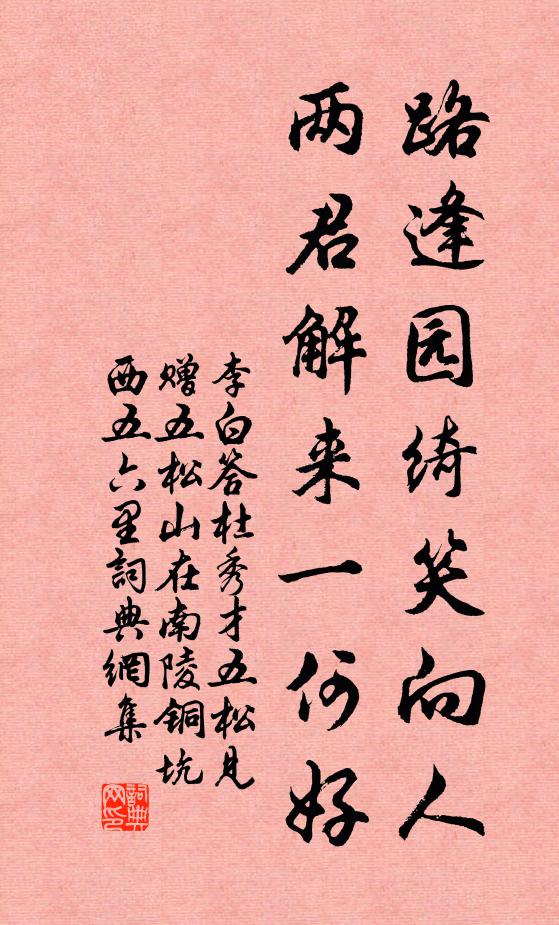 路逢园绮笑向人
两君解来一何好
李白答杜秀才五松见
赠五松山在南陵铜坑
西五六里詞典網集
詞典
网印